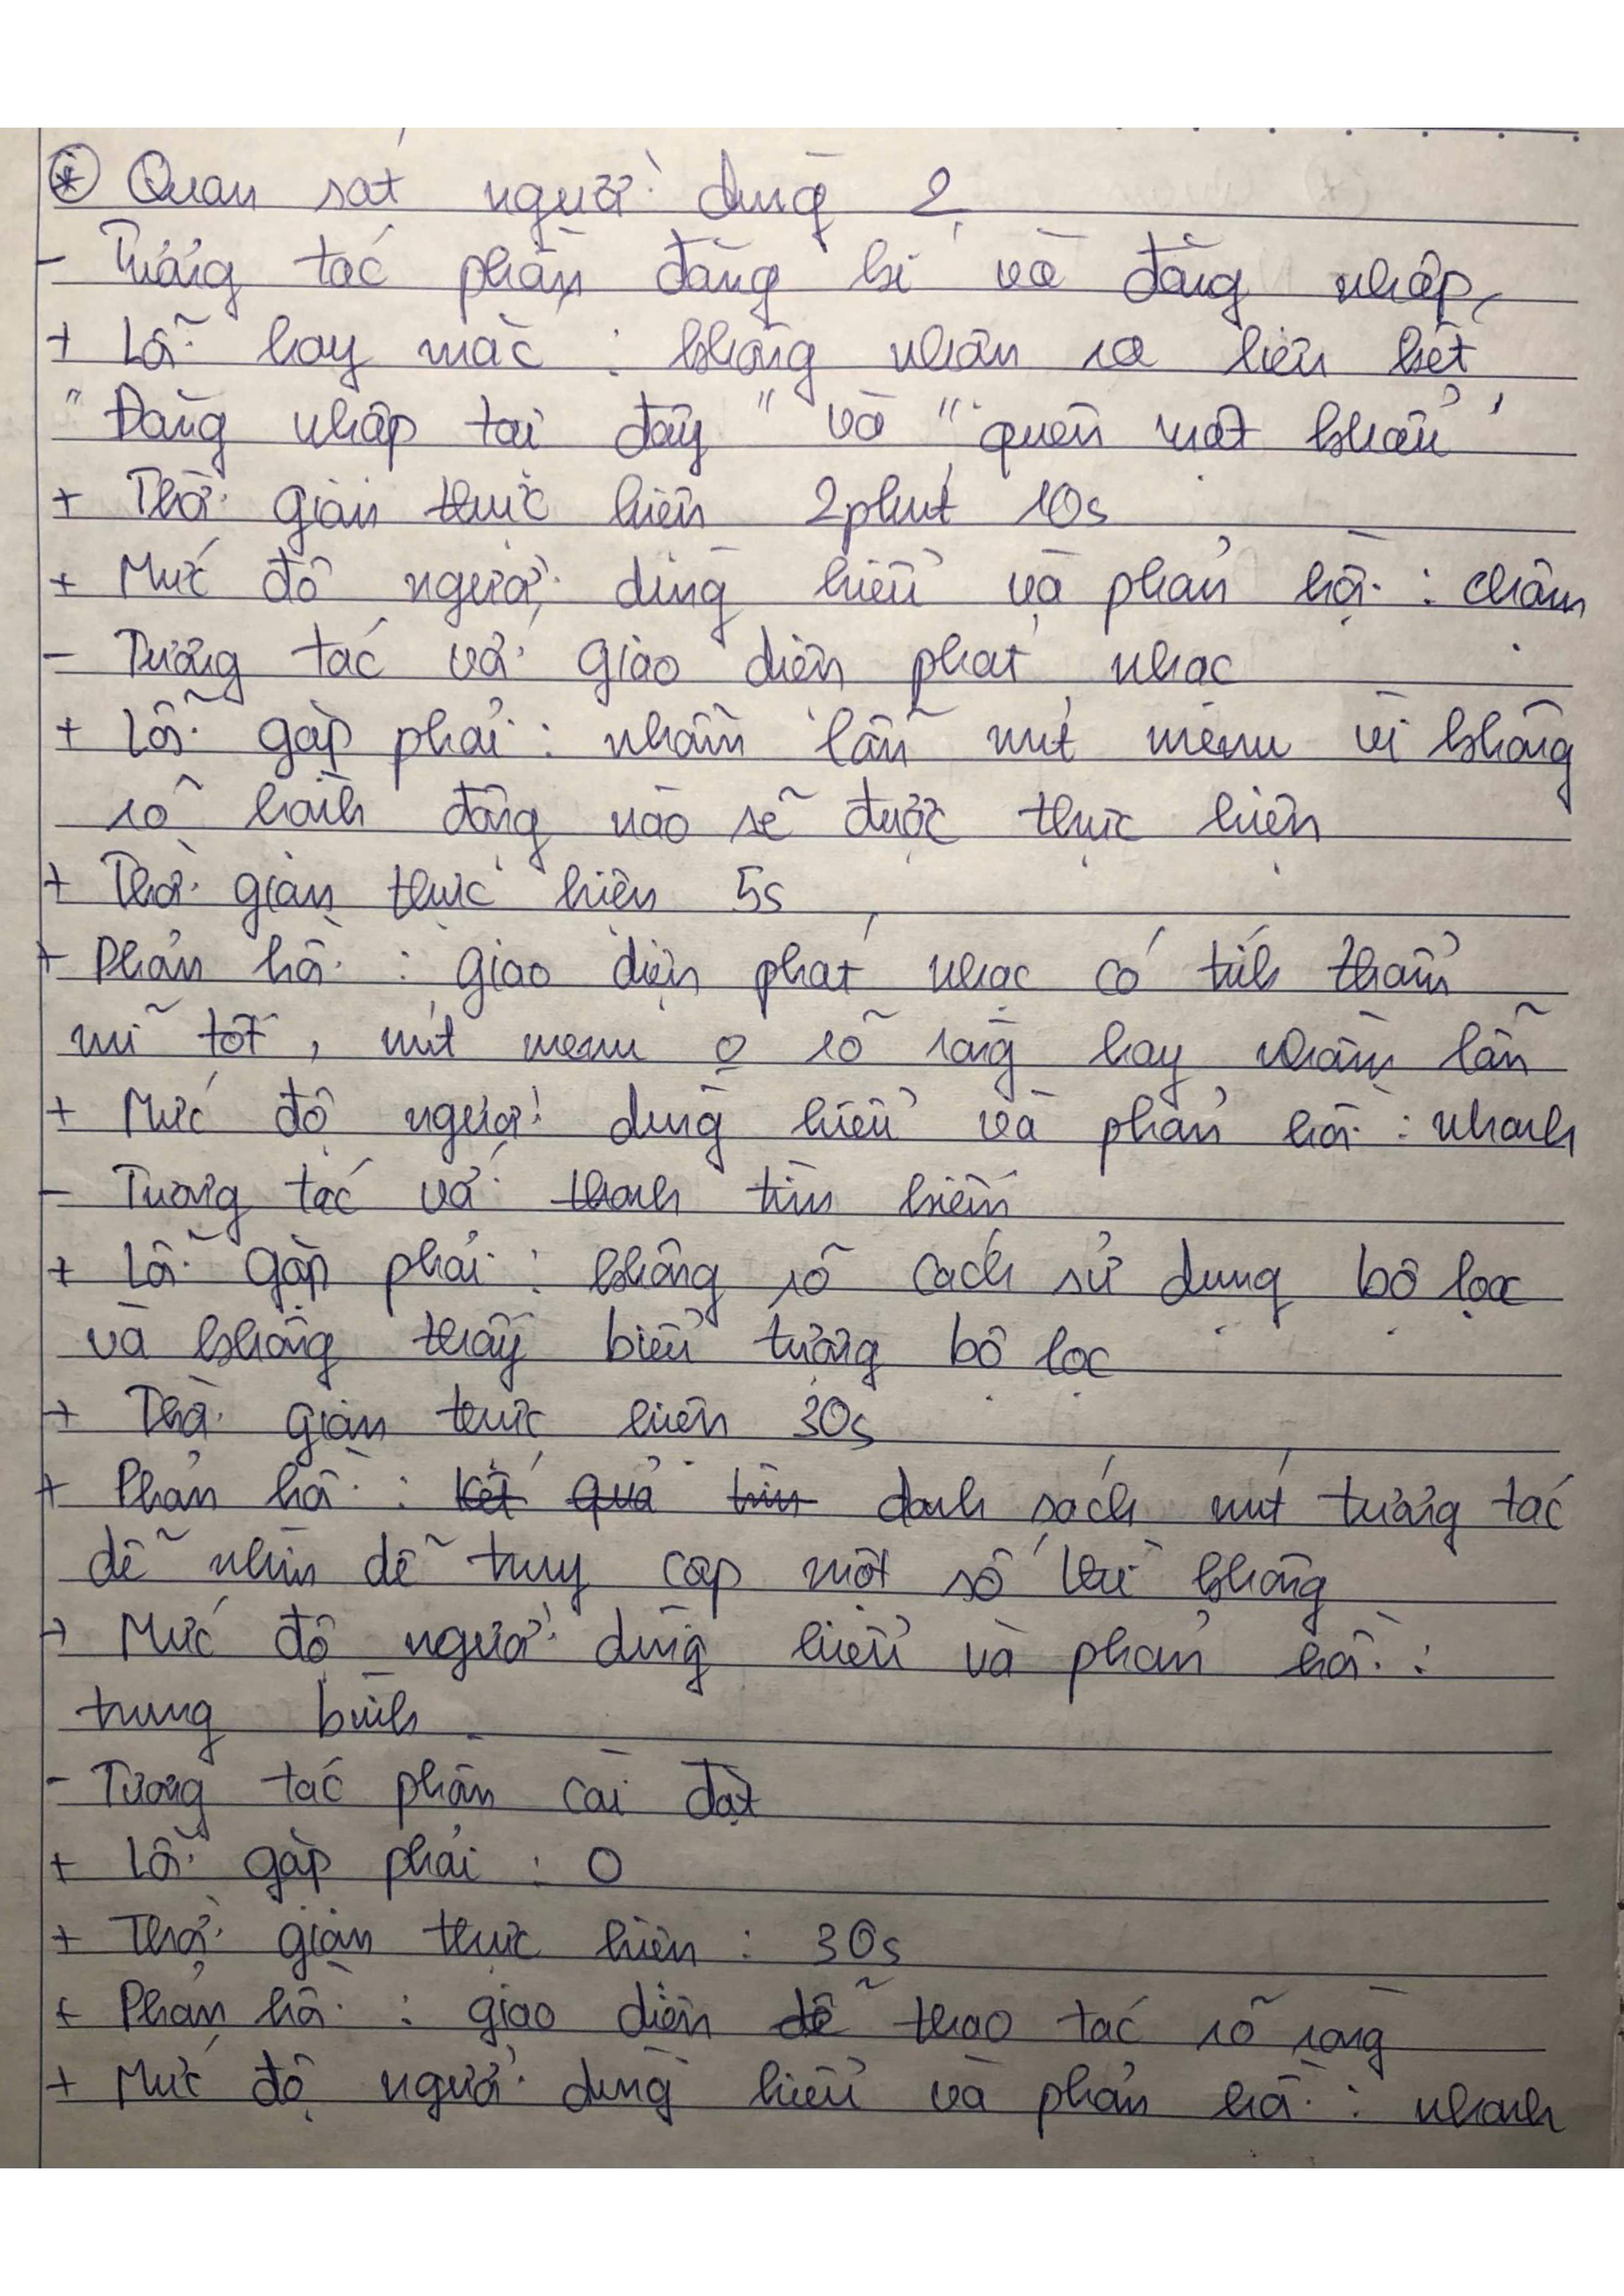 ⊛ Quan sát người dùng 2
- Tương tác phần đăng kí và đăng nhập
+ Lỗi hay mắc : không nhấn ra liên kết
"Đăng nhập tại đây" và "quên mật khẩu"
+ Thời gian thực hiện 2phút 10s
+ Mức độ người dùng hiểu và phản hồi : chậm
- Tương tác với giao diện phát nhạc
+ Lỗi gặp phải : nhầm lẫn nút menu vì không
rõ hành động nào sẽ được thực hiện
+ Thời gian thực hiện 5s
+ Phản hồi : giao diện phát nhạc có tính thẩm
mĩ tốt , nút menu o rõ ràng hay nhầm lẫn
+ Mức độ người dùng hiểu và phản hồi : nhanh
- Tương tác với thanh tìm kiếm
+ Lỗi gặp phải : không rõ cách sử dụng bộ lọc
và không thấy biểu tượng bộ lọc
+ Thời gian thực hiện 30s
+ Phản hồi : kết quả tìm danh sách nút tương tác
dễ nhìn dễ truy cập một số thì không
+ Mức độ người dùng hiểu và phản hồi :
trung bình
- Tương tác phần cài đặt
+ Lỗi gặp phải : 0
+ Thời gian thực hiện : 30s
+ Phản hồi : giao diện dễ thao tác rõ ràng
+ Mức độ người dùng hiểu và phản hồi : nhanh